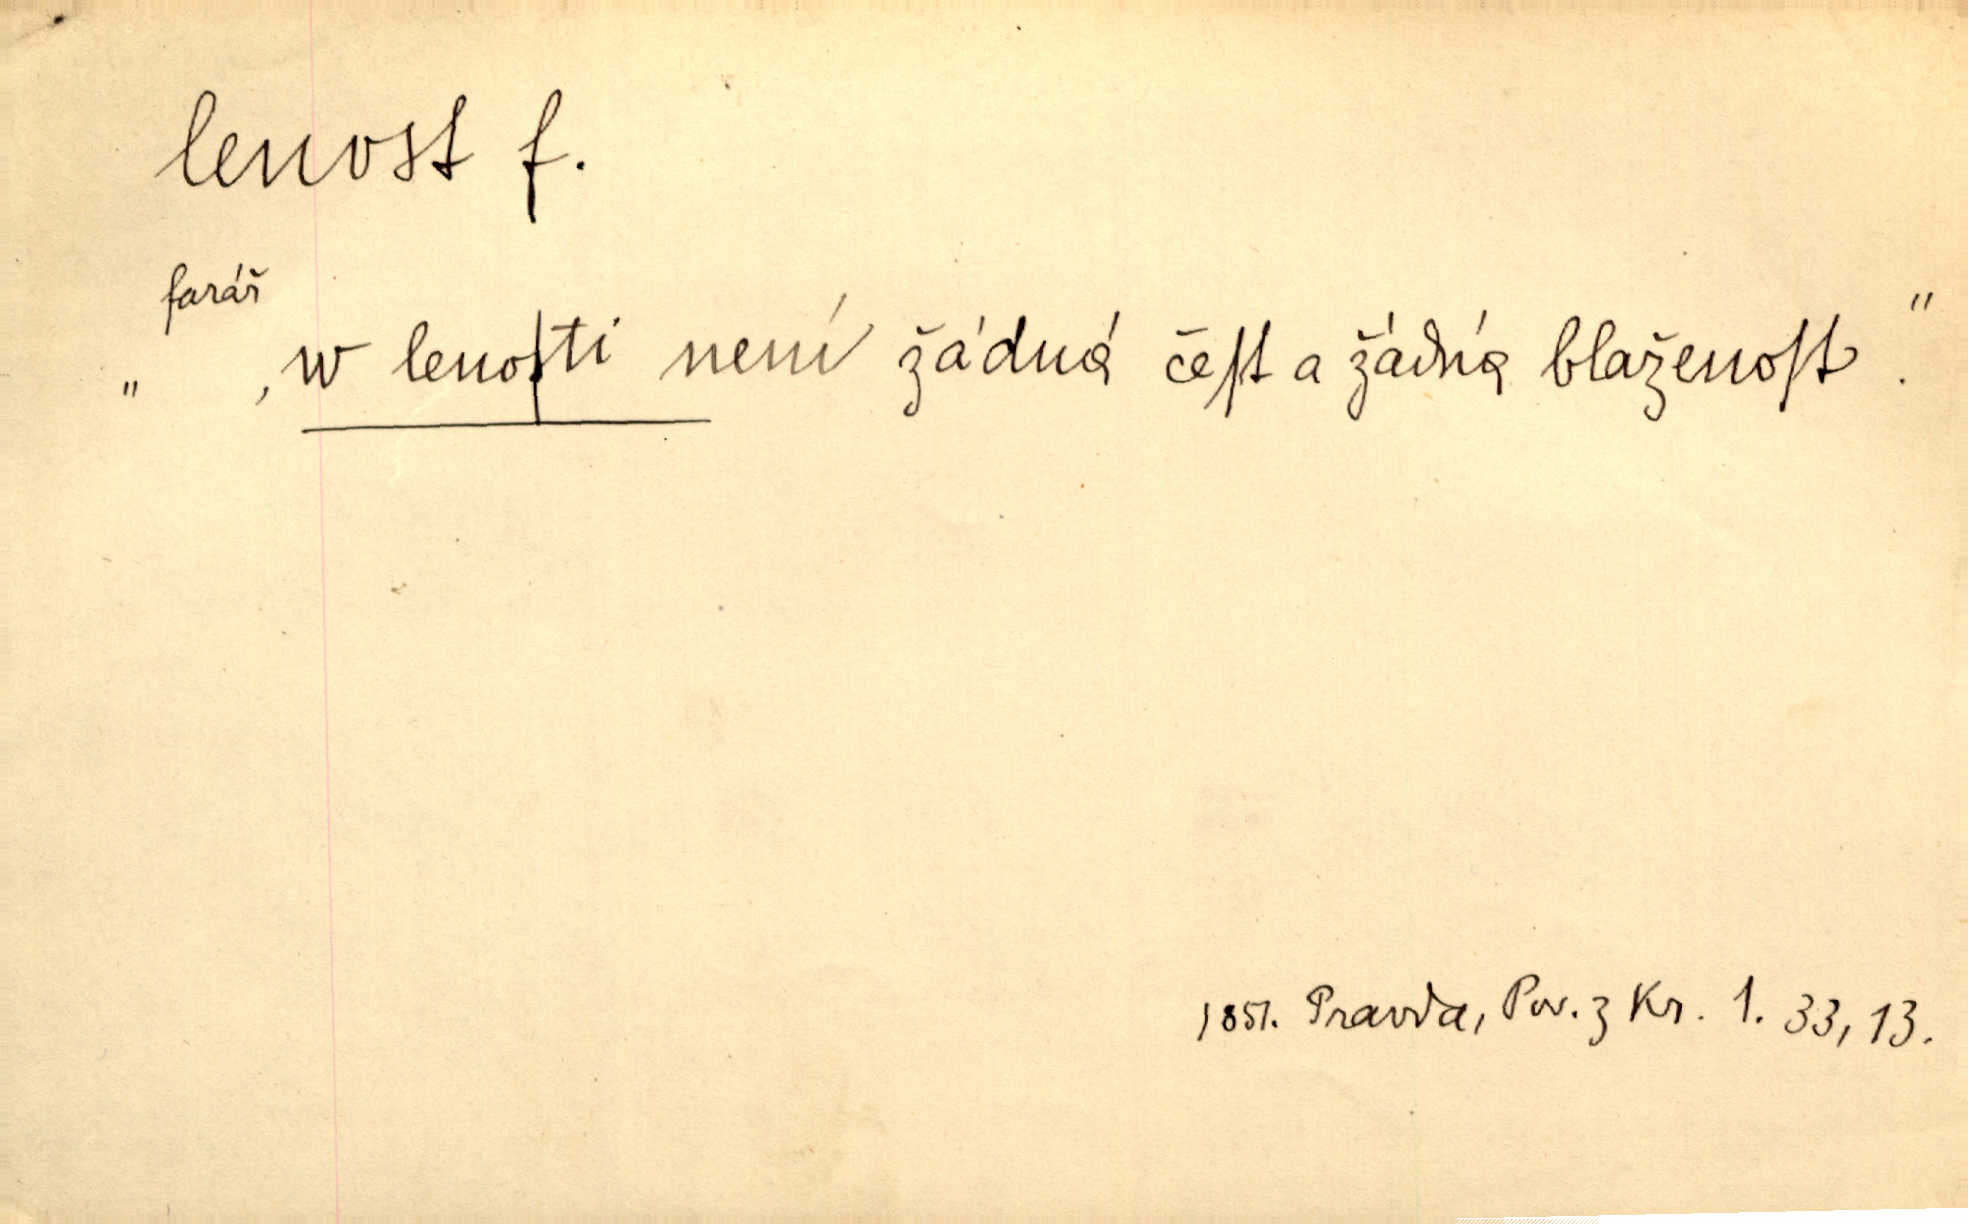 lenost f.
farář
„ , w lenoſti není žádná čeſt a žádná blaženoſt."
1851. Pravda, Pov. z Kr. 1. 33, 13.